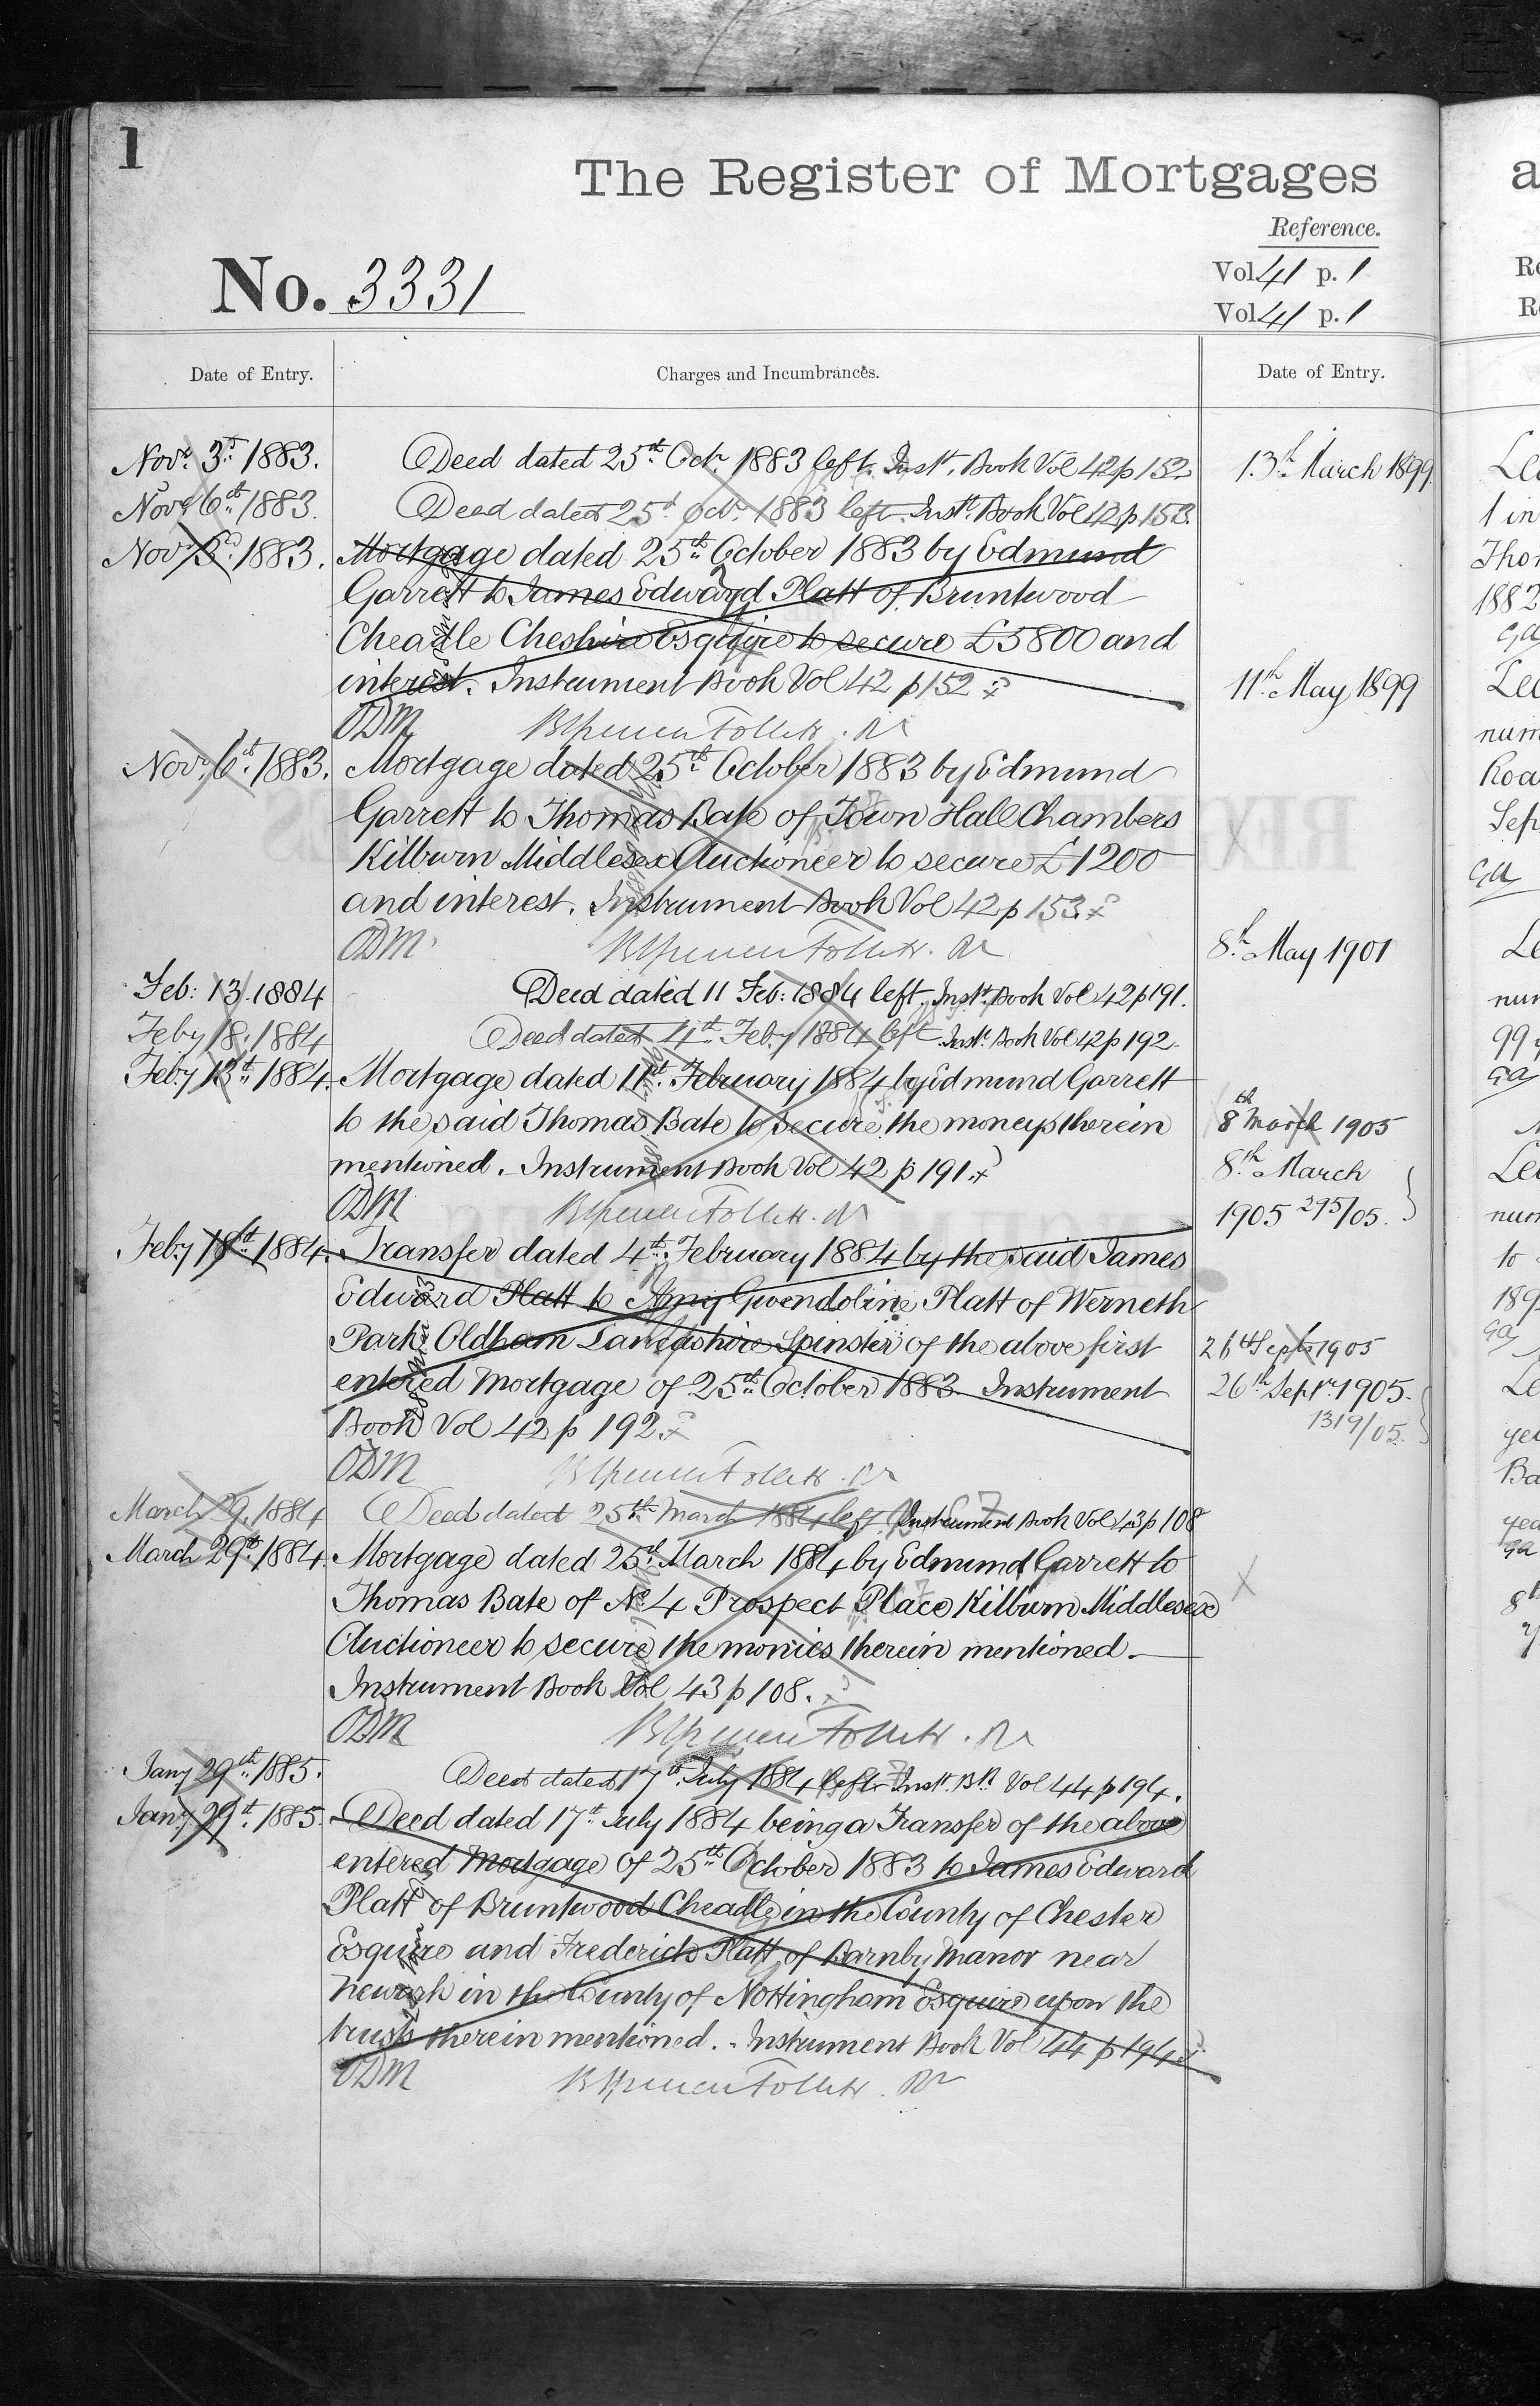 1
The Register of Mortgages
Reference.
No. 3331
Vol. 41 p. 1
Vol. 41 p. 1
Date of Entry.
Charges and Incumbrances.
Date of Entry.
Novr. 3rd 1883.
Deed dated 25th Octr. 1883 left. Inst. Book Vol 42 p 152
Novr 6th 1883.
Deed dated 25th Octr. 1883 left. Inst. Book Vol 42 p 153.
Novr 3rd 1883.
Mortgage dated 25th October 1883 by Edmund
Garrett to James Edward Platt of Bruntwood
Cheadle Cheshire Esquire to secure £5800 and
interest. Instrument Book Vol 42 p 152
ODM
Novr. 6th 1883.
Mortgage dated 25th October 1883 by Edmund
Garrett to Thomas Bate of Town Hall Chambers
Kilburn Middlesex Auctioneer to secure £1200
and interest. Instrument Book Vol 42 p 153.
ODM
Feb: 13. 1884
Deed dated 11 Feb: 1884 left. Inst. Book Vol 42 p 191.
Feby 18. 1884
Deed dated 4th Feby 1884 left Inst. Book Vol 42 p 192.
Feby 13th 1884.
Mortgage dated 11th February 1884 by Edmund Garrett
to the said Thomas Bate to secure the moneys therein
mentioned. Instrument Book Vol 42 p 191.
ODM
Feby 18th 1884.
Transfer dated 4th February 1884 by the said James
Edward Platt to Amy Gwendoline Platt of Werneth
Park Oldham Lancashire Spinster of the above first
entered Mortgage of 25th October 1883 Instrument
Book Vol 42 p 192.
ODM
March 29. 1884
Deed dated 25th March 1884 left. Instrument Book Vol 43 p 108
March 29th 1884.
Mortgage dated 25th March 1884 by Edmund Garrett to
Thomas Bate of No 4 Prospect Place Kilburn Middlesex
Auctioneer to secure the monies therein mentioned
Instrument Book Vol 43 p 108.
ODM
Jany 29th 1885.
Deed dated 17th July 1884 left Inst. Bk. Vol 44 p 194.
Jany 29th 1885.
Deed dated 17th July 1884 being a Transfer of the above
entered Mortgage of 25th October 1883 to James Edward
Platt of Bruntwood Cheadle in the County of Chester
Esquire and Frederick Platt of Barnby Manor near
Newark in the County of Nottingham Esquire upon the
trusts therein mentioned. Instrument Book Vol 44 p 194
ODM
13th March 1899.
11th May 1899
8th May 1901
8th March 1905
8th March
1905 295/05.
26th Sept 1905
26th Septr. 1905.
1319/05.
a
Re
Re
Lea
1 in
Thom
1882
Lea
num
Roa
Sep
GA
Le
num
99 y
GA
Lea
num
to
189
GA
Le
yea
Ba
yea
GA
8th